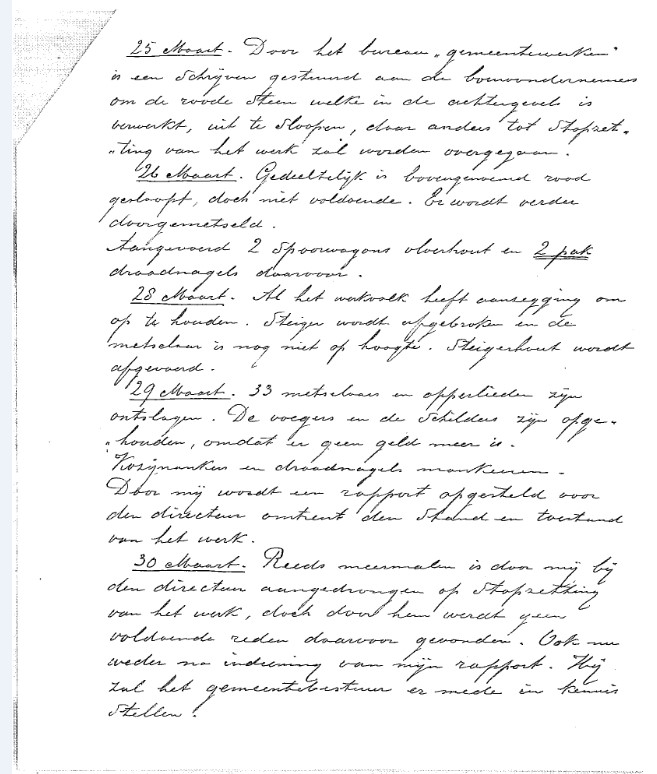 25 Maart. Door het bureau „gemeentewerken"
is een schrijven gestuurd aan de bouwondernemers
om de roode steen welke in de achtergevels is
verwerkt, uit te sloopen, daar anders tot stopzet-
„ting van het werk zal worden overgegaan.
26 Maart. Gedeeltelijk is bovengenoemd rood
gesloopt, doch niet voldoende. Er wordt verder
doorgemetseld.
Aangevoerd 2 spoorwagons vloerhout en 2 pak
draadnagels daarvoor.
28 Maart. Al het werkvolk heeft aanzegging om
op te houden. Steiger wordt afgebroken en de
metselaar is nog niet op hoogte. Steigerhout wordt
afgevoerd.
29 Maart. 33 metselaars en opperlieden zijn
ontslagen. De voegers en de schilders zijn opge-
„houden, omdat er geen geld meer is.
Kozijnankers en draadnagels mankeeren.
Door mij wordt een rapport opgesteld voor
den directeur omtrent den stand en toestand
van het werk.
30 Maart. Reeds meermalen is door mij bij
den directeur aangedrongen op stopzetting
van het werk, doch door hem werdt geen
voldoende reden daarvoor gevonden. Ook nu
weder na indiening van mijn rapport. Hij
zal het gemeentebestuur er mede in kennis
stellen!